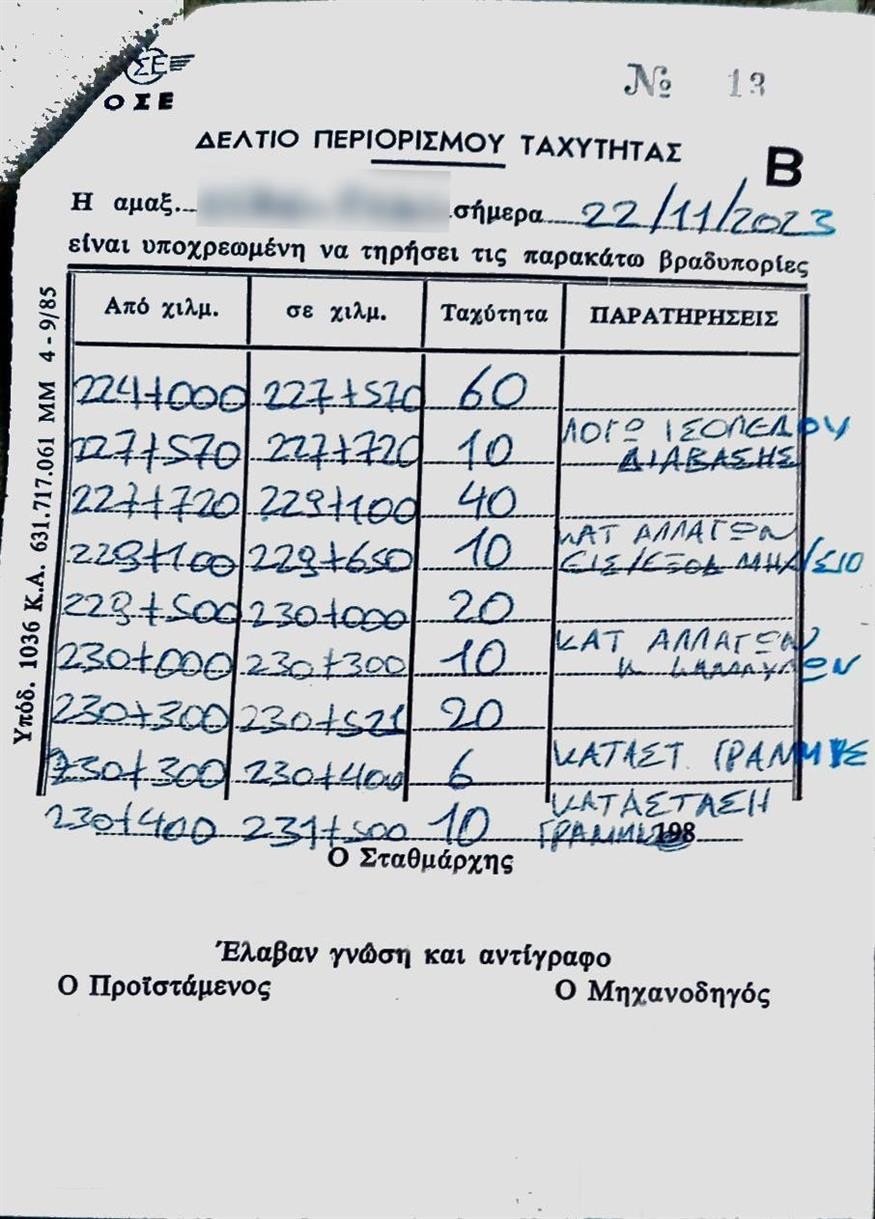 ΣΕ
ΟΣΕ
№ 13
ΔΕΛΤΙΟ ΠΕΡΙΟΡΙΣΜΟΥ ΤΑΧΥΤΗΤΑΣ Β
Η αμαξ... σήμερα 22/11/2023
είναι υποχρεωμένη να τηρήσει τις παρακάτω βραδυπορίες
Από χιλμ. σε χιλμ. Ταχύτητα ΠΑΡΑΤΗΡΗΣΕΙΣ
224+000 227+570 60
227+570 227+720 10 ΛΟΓΩ ΙΣΟΠΕΔΟΥ
ΔΙΑΒΑΣΗΣ
227+720 229+100 40
229+100 229+650 10 ΚΑΤ ΑΛΛΑΓΩΝ
ΕΙΣ/ΕΞΟΔ ΜΗΧ/ΣΙΟ
229+500 230+000 20
230+000 230+300 10 ΚΑΤ ΑΛΛΑΓΩΝ
Κ ΚΑΜΠΥΛΩΝ
230+300 230+521 20
230+300 230+400 6 ΚΑΤΑΣΤ. ΓΡΑΜΜΗΣ
230+400 231+500 10 ΚΑΤΑΣΤΑΣΗ
ΓΡΑΜΜΗΣ 198
Ο Σταθμάρχης
Έλαβαν γνώση και αντίγραφο
Ο Προϊστάμενος Ο Μηχανοδηγός
Υπόδ. 1036 Κ.Α. 631.717.061 ΜΜ 4-9/85